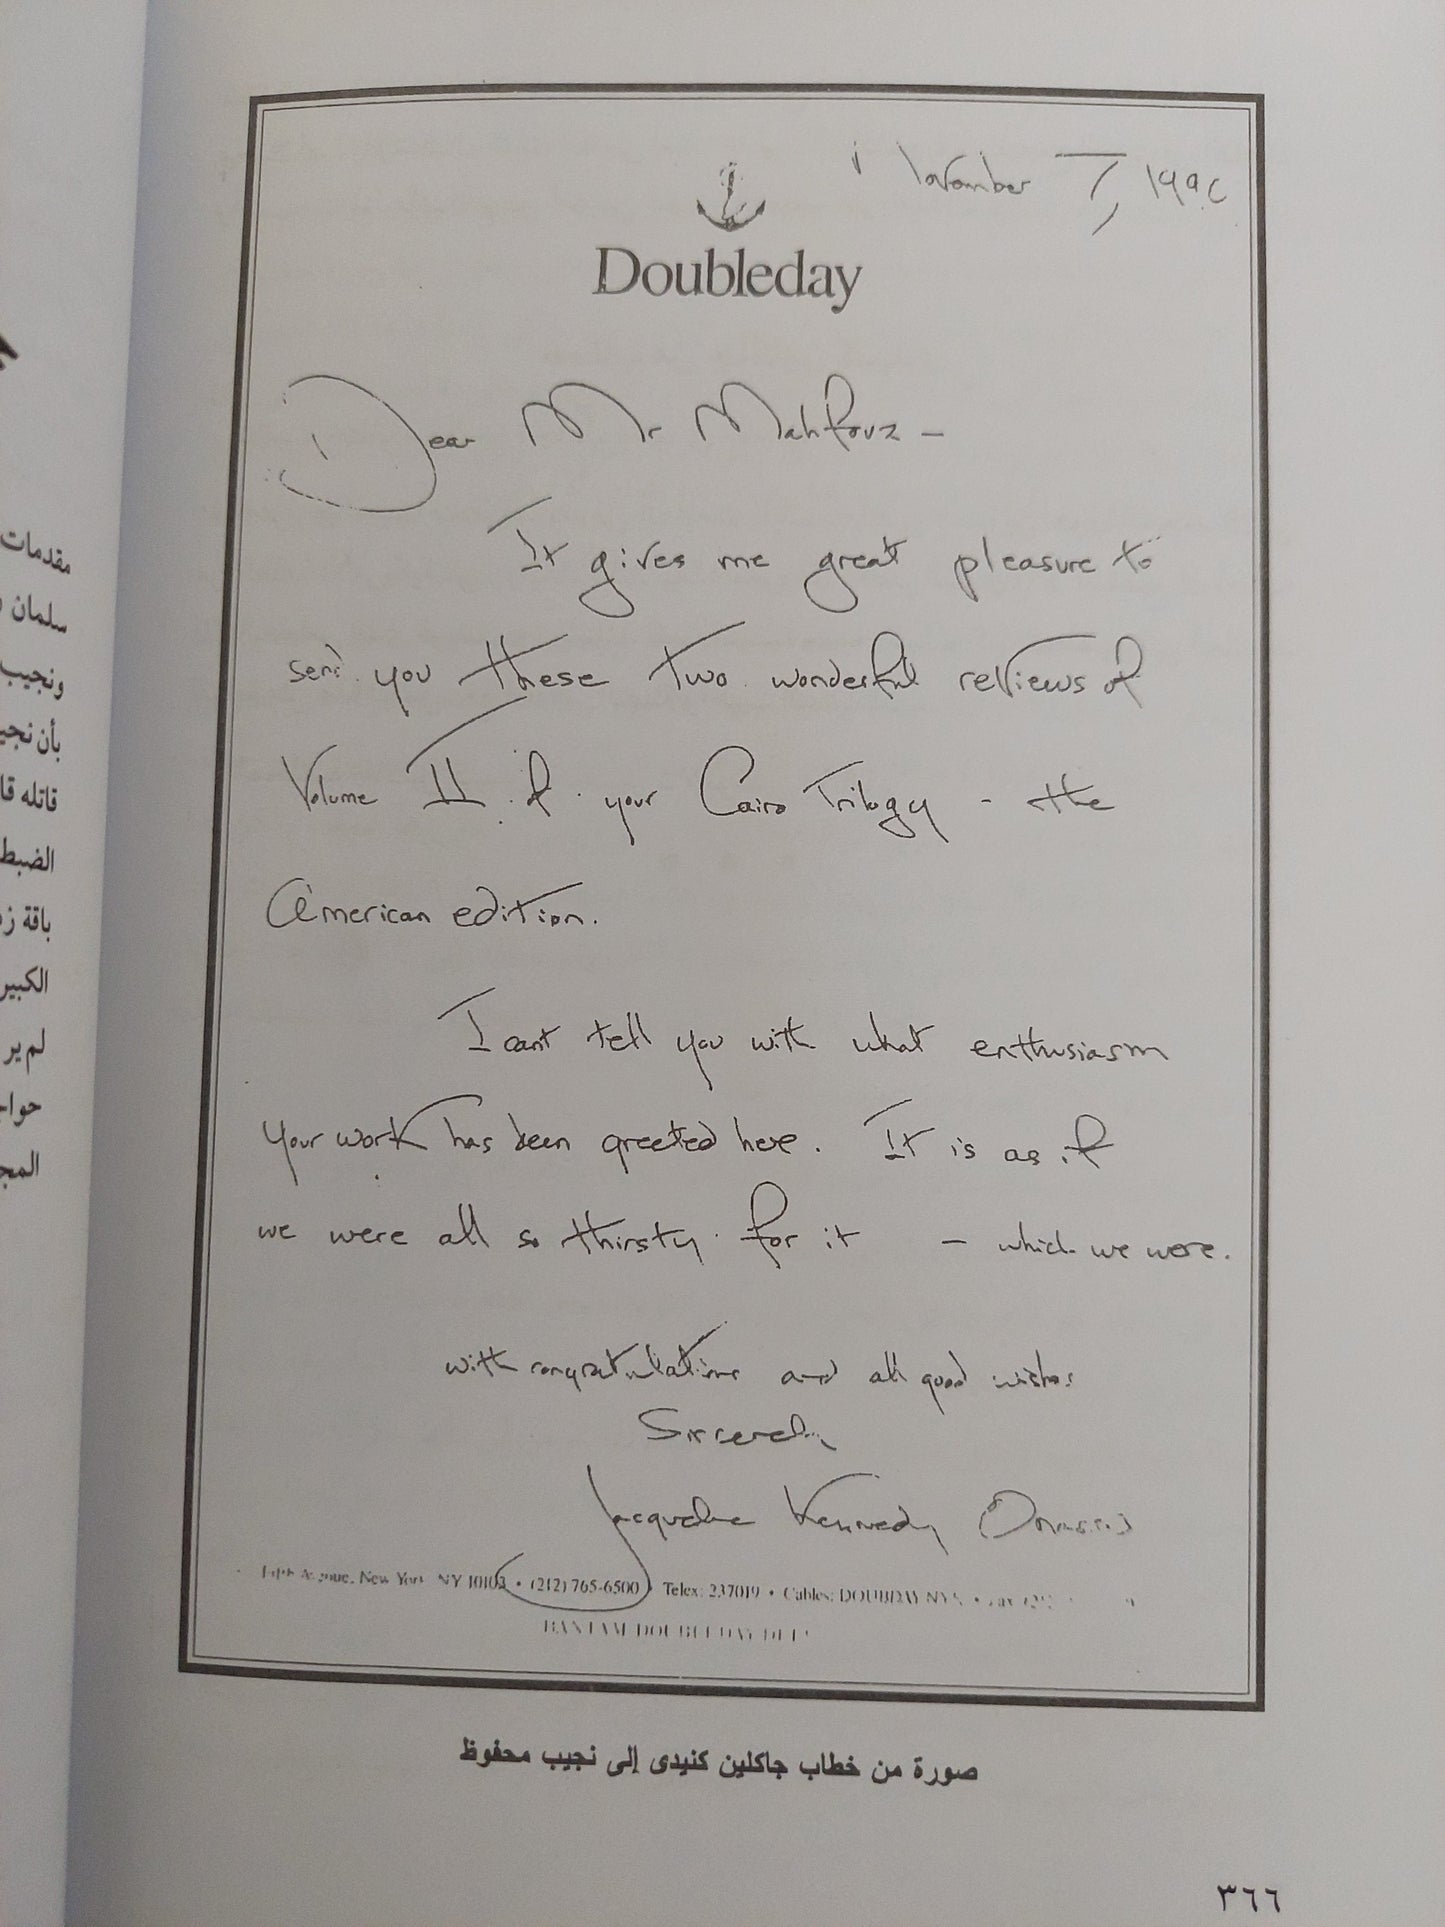 November 7, 199
Doubleday
Dear Mr Mahfouz –
It gives me great pleasure to
send you these two wonderful reviews of
Volume II of your Cairo Trilogy - the
American edition.
I cant tell you with what enthusiasm
your work has been greeted here. It is as if
we were all so thirsty for it – which we were.
with congratulations and all good wishes
Sincerely
Jacqueline Kennedy Onassis
Fifth Avenue, New York NY 10103 • (212) 765-6500 • Telex: 237019 • Cables: DOUBDAY NYK •
BANTAM DOUBLEDAY DELL
صورة من خطاب جاكلين كنيدى إلى نجيب محفوظ
٣٦٦
مقدمات
سلمان
ونجيب
بأن نجي
قاتله قا
الضبط
باقة ز
الكبير
لم ير
حواج
المج